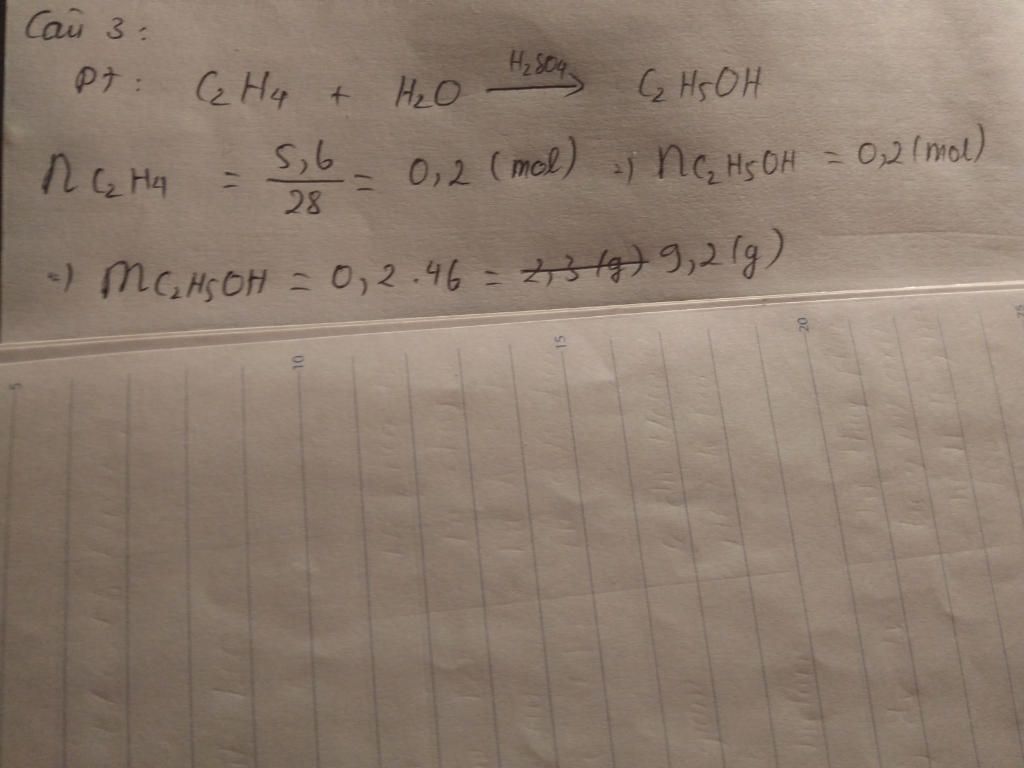 Câu 3:
PT: C2H4 + H2O H2SO4→ C2H5OH
nC2H4 = 5,6/28 = 0,2 (mol) => nC2H5OH = 0,2 (mol)
=> mC2H5OH = 0,2 . 46 = 2,3 (g) 9,2 (g)
5 10 15 20 25